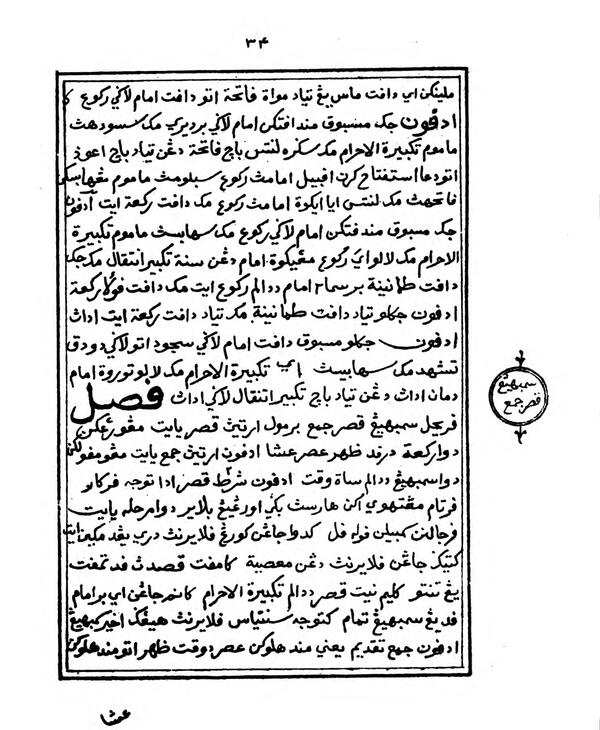 ٣٤
ملينكن اي دافت ماس يڠ تياد مواة فاتحة اتو دافت امام لاڬي ركوع كا
ادفون جك مسبوق مندافتكن امام لاڬي برديري مك سسوده
ماموم تكبيرة الاحرام مك سكره لنتس باچ فاتحة دڠن تياد باچ اعوذ
اتو دعا استفتاح كرن اڤبيل امامڽ ركوع سبلومڽ ماموم مڠهابسكن
فاتحهڽ مك لنتس ايا ايكوة امامڽ ركوع مك دافت ركعة ايت ادفون
جك مسبوق مندافتكن امام لاڬي ركوع مك سهابيسڽ ماموم تكبيرة
الاحرام مك لالو اي ركوع مڠيكوة امام دڠن سنة تكبير انتقال مك جك
دافت طمانينة برسمااڽ امام ددالم ركوع ايت مك دافت فولا ركعة
ادفون جكلو تياد دافت طمانينة مك تياد دافت ركعة ايت اداڽ
ادفون جكلو مسبوق دافت امام لاڬي سجود اتو لاڬي دودق
تشهد مك سهابيسڽ اي تكبيرة الاحرام مك لالو توروة امام
دمان اداڽ دڠن تياد باچ تكبير انتقال لاڬي اداڽ فصل
فريحل سمبهيڠ قصر جمع برمول ارتيڽ قصر يايت مڠورڠكن
دوا ركعة درفد ظهر عصر عشا ادفون ارتيڽ جمع يايت مڠومفولكن
دوا سمبهيڠ ددالم ساة وقت ادفون شرط قصر ادا توجه فركارا
فرتام مڠتهوي اكن هارسڽ بڬي اورڠ يڠ بلاير دوا مرحله يايت
فرجالنن سمبيلن فوله فل كدوا جاڠن كورڠ فلايرنڽ دري يڠد مكين ايت
كتيڬ جاڠن فلايرنڽ دڠن معصية كامفت قصدڽ فد تمفت
يڠ تنتو كليم نيت قصر ددالم تكبيرة الاحرام كانم جاڠن اي برامام
فد يڠ سمبهيڠ تمام كتوجه سنتياس فلايرنڽ هيڠڬ اخير سمبهيڠ
ادفون جمع تقديم يعني مندهلوكن عصر دوقت ظهر اتو مندهلوكن
عشا
سمبهيڠ
قصر جمع